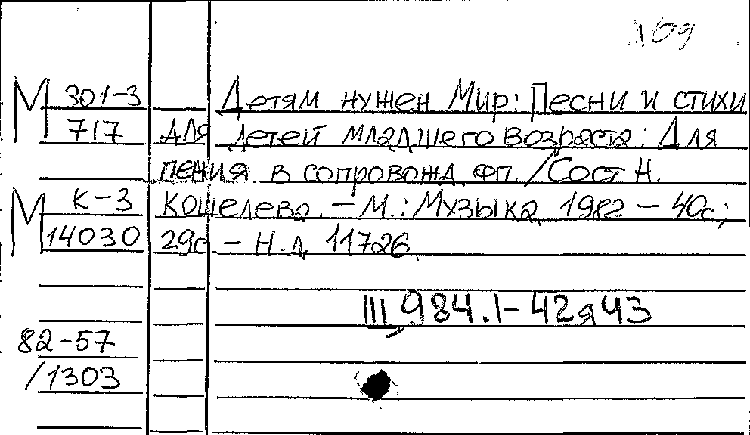 М 301-3 Детям нужен Мир: Песни и стихи
717 для детей младшего возраста: Для
пения в сопровожд. фп. / Сост Н.
М К-3 Кошелева. - М.: Музыка, 1982 - 40с;
14030 29с - Н.д. 11726
III 984.1-42я43
82-57
/1303